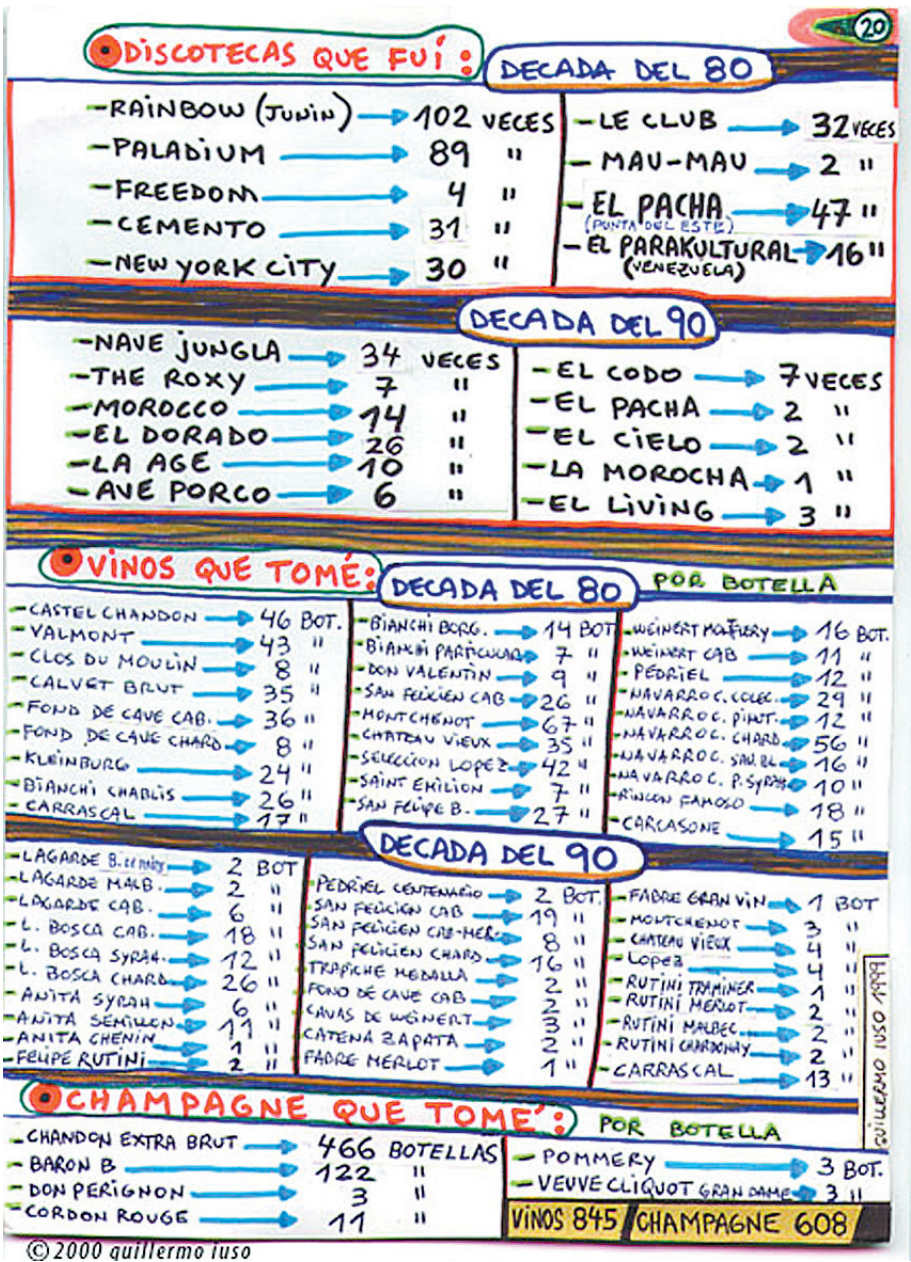 20
DISCOTECAS QUE FUÍ:
DECADA DEL 80
-RAINBOW (JUNIN) 102 VECES
-PALADIUM 89 "
-FREEDOM 4 "
-CEMENTO 31 "
-NEW YORK CITY 30 "
-LE CLUB 32 VECES
-MAU-MAU 2 "
-EL PACHA 47 "
(PUNTA DEL ESTE)
-EL PARAKULTURAL 16 "
(VENEZUELA)
DECADA DEL 90
-NAVE JUNGLA 34 VECES
-THE ROXY 7 "
-MOROCCO 14 "
-EL DORADO 26 "
-LA AGE 10 "
-AVE PORCO 6 "
-EL CODO 7 VECES
-EL PACHA 2 "
-EL CIELO 2 "
-LA MOROCHA 1 "
-EL LIVING 3 "
VINOS QUE TOMÉ:
DECADA DEL 80
POR BOTELLA
-CASTEL CHANDON 46 BOT.
-VALMONT 43 "
-CLOS DU MOULIN 8 "
-CALVET BRUT 35 "
-FOND DE CAVE CAB. 36 "
-FOND DE CAVE CHARD 8 "
-KLEINBURG 24 "
-BIANCHI CHABLIS 26 "
-CARRASCAL 17 "
-BIANCHI BORG. 14 BOT
-BIANCHI PARTICULAR 7 "
-DON VALENTIN 9 "
-SAN FELICIEN CAB 26 "
-MONTCHENOT 67 "
-CHATEAU VIEUX 35 "
-SELECCION LOPEZ 42 "
-SAINT EMILION 7 "
-SAN FELIPE B. 27 "
-WEINERT 16 BOT.
-WEINERT CAB 11 "
-PEDRIEL 12 "
-NAVARRO C. COLEC. 29 "
-NAVARRO C. PINOT. 12 "
-NAVARRO C. CHARD. 56 "
-NAVARRO C. SAU. BL. 16 "
-NAVARRO C. P. SYRAH 10 "
-RINCON FAMOSO 18 "
-CARCASONE 15 "
DECADA DEL 90
-LAGARDE 2 BOT
-LAGARDE MALB. 2 "
-LAGARDE CAB. 6 "
-L. BOSCA CAB. 18 "
-L. BOSCA SYRAH. 12 "
-L. BOSCA CHARD. 26 "
-ANITA SYRAH 6 "
-ANITA SEMILLON 11 "
-ANITA CHENIN 1 "
-FELIPE RUTINI 2 "
-PEDRIEL CENTENARIO 2 BOT.
-SAN FELICIEN CAB 19 "
-SAN FELICIEN CAB-MER. 8 "
-SAN FELICIEN CHARD. 16 "
-TRAPICHE MEDALLA 2 "
-FOND DE CAVE CAB 2 "
-CAVAS DE WEINERT 3 "
-CATENA ZAPATA 2 "
-FABRE MERLOT 1 "
-FABRE GRAN VIN 1 BOT
-MONTCHENOT 3 "
-CHATEAU VIEUX 4 "
-LOPEZ 4 "
-RUTINI TRAMINER 1 "
-RUTINI MERLOT 2 "
-RUTINI MALBEC 2 "
-RUTINI CHARDONAY 2 "
-CARRASCAL 13 "
GUILLERMO IUSO 1999
CHAMPAGNE QUE TOMÉ:
POR BOTELLA
-CHANDON EXTRA BRUT 466 BOTELLAS
-BARON B 122 "
-DON PERIGNON 3 "
-CORDON ROUGE 11 "
-POMMERY 3 BOT.
-VEUVE CLIQUOT GRAN DAME 3 "
VINOS 845 CHAMPAGNE 608
© 2000 guillermo iuso